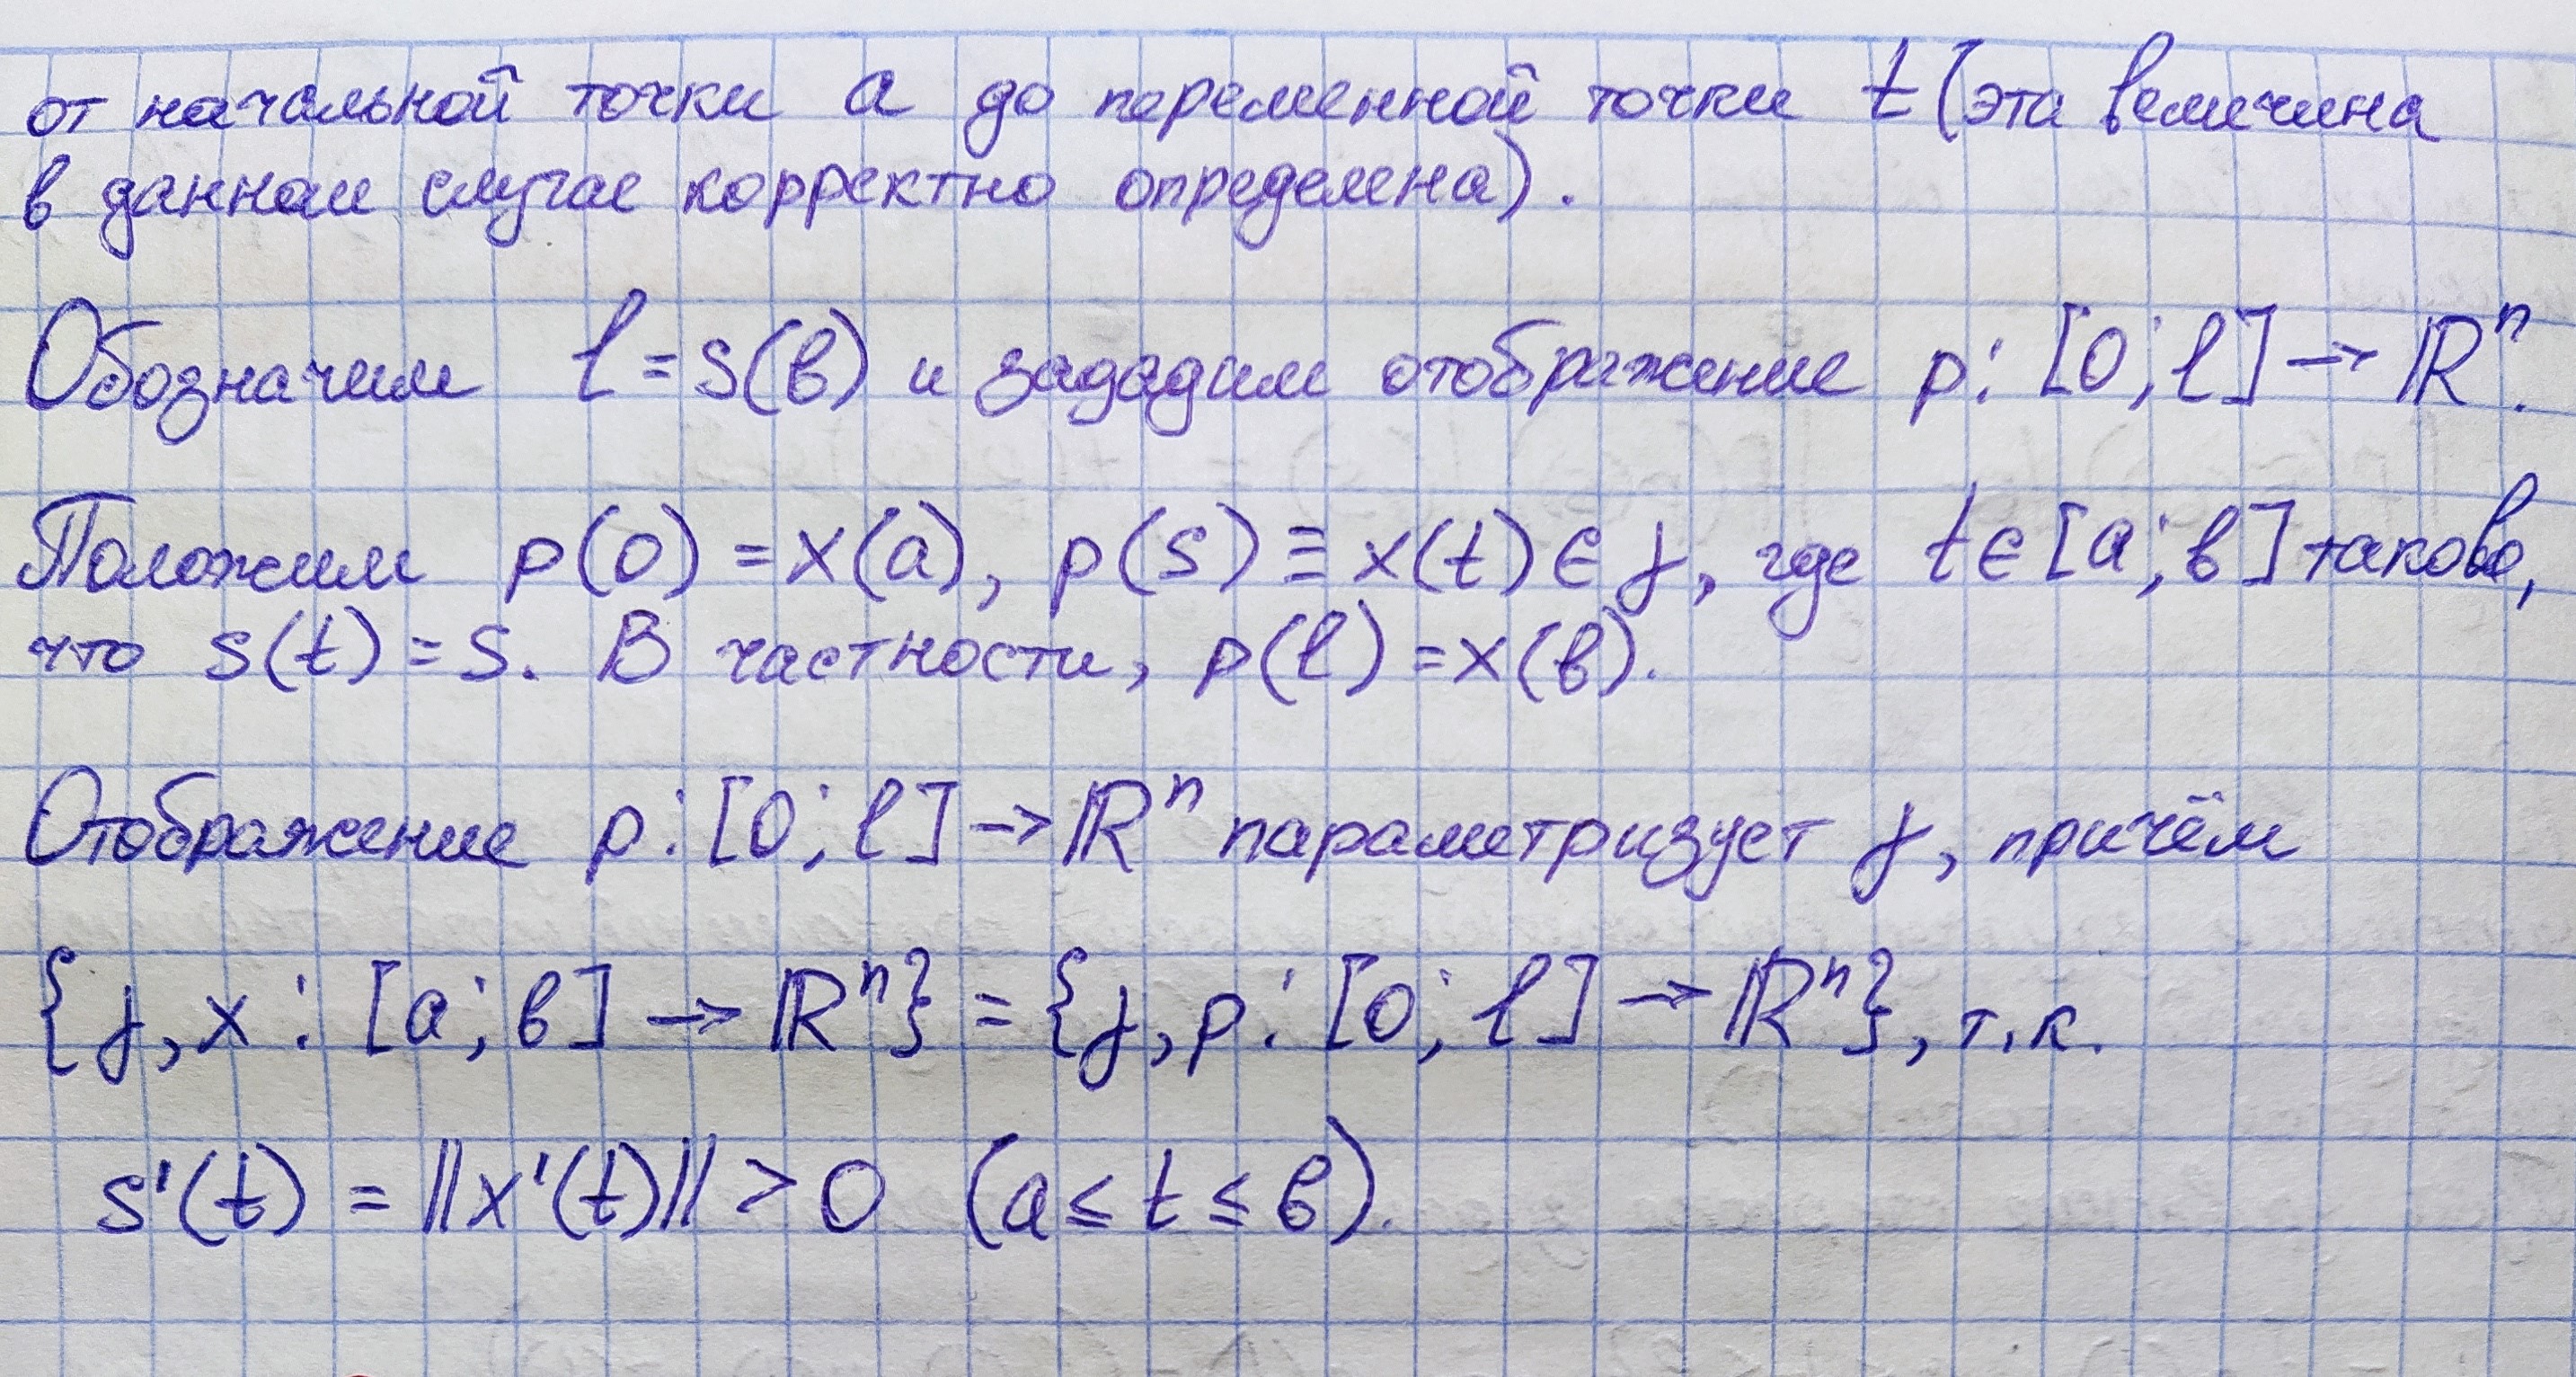 от начальной точки a до переменной точки t (эта величина
в данном случае корректно определена).
Обозначим l = s(b) и зададим отображение p: [0; l] → ℝⁿ.
Положим p(0) = x(a), p(s) ≡ x(t) ∈ γ, где t ∈ [a; b] таково,
что s(t) = s. В частности, p(l) = x(b).
Отображение p: [0; l] → ℝⁿ параметризует γ, причём
{γ, x: [a; b] → ℝⁿ} = {γ, p: [0; l] → ℝⁿ}, т.к.
s'(t) = ||x'(t)|| > 0 (a ≤ t ≤ b).